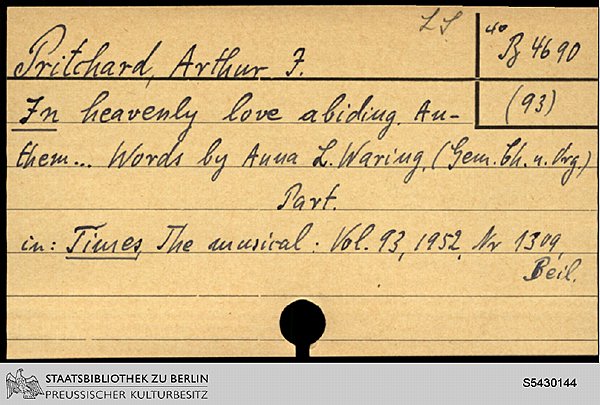 LS
4o B 4690
Pritchard, Arthur J.
(93)
In heavenly love abiding. An-
them... Words by Anna L. Waring. (Gem. Ch. u. Org)
Part.
in: Times, The musical: Vol. 93, 1952, Nr 1309,
Beil.
STAATSBIBLIOTHEK ZU BERLIN
PREUSSISCHER KULTURBESITZ
S5430144